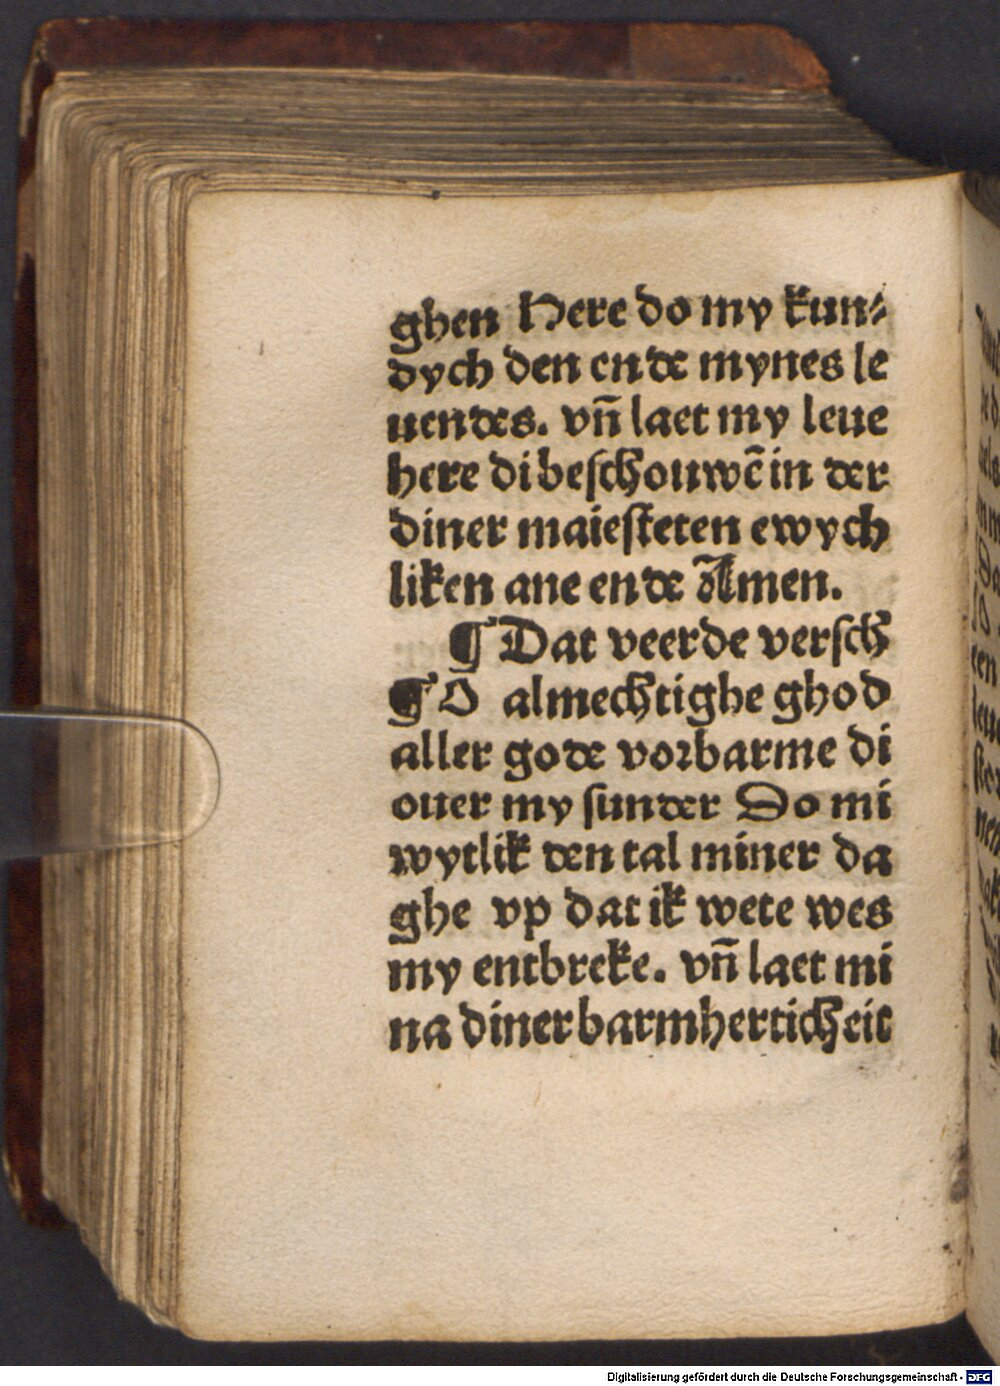 ghen Here do my kun⸗
dych den ende mynes le
uendes. vn̄ laet my leue
here di beschouwē in der
diner maiesteten ewych
liken ane ende Amen.
¶ Dat veerde versch
¶ O almechtighe ghod
aller gode vorbarme di
ouer my sunder Do mi
wytlik den tal miner da
ghe vp dat ik wete wes
my entbreke. vn̄ laet mi
na diner barmherticheit
Digitalisierung gefördert durch die Deutsche Forschungsgemeinschaft - DFG